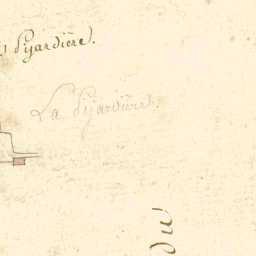 Pijardière.
La Pijardière.
du